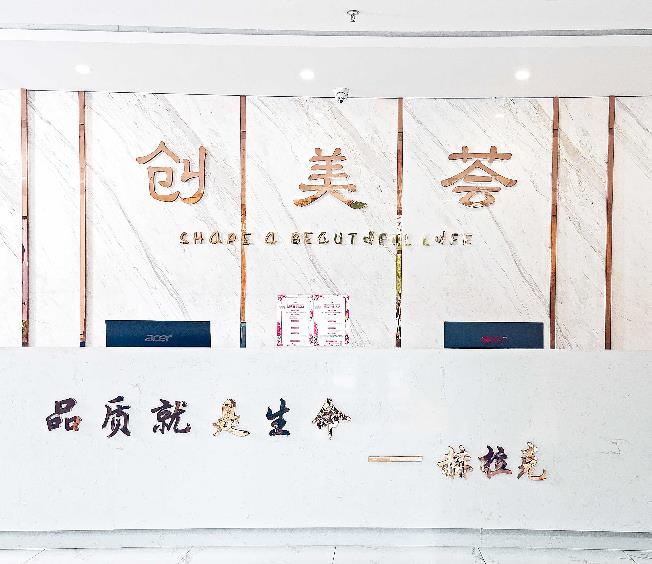 创美荟
SHAPE A BEAUTIFUL LIFE
acer
品质就是生命
——赫拉克